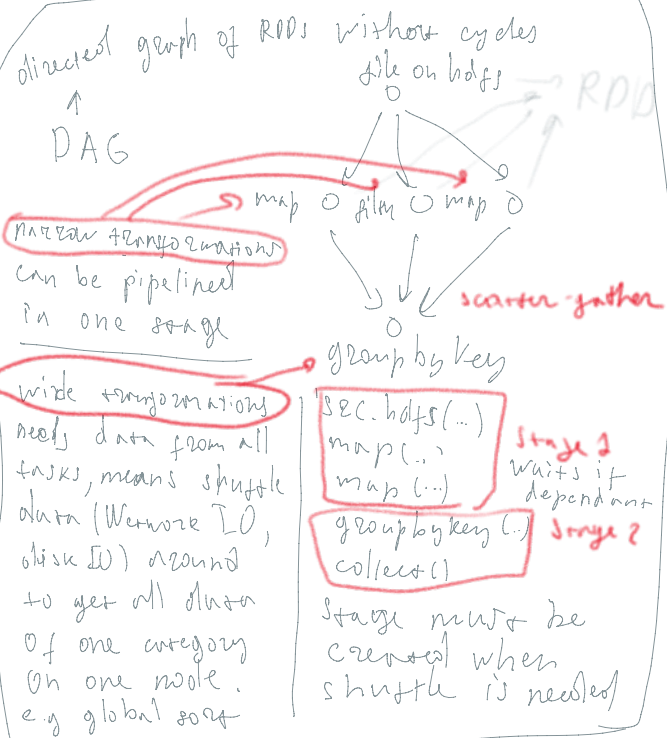 directed graph of RDDs without cycles
file on hdfs
RDD
DAG
map filter map
narrow transformations
can be pipelined
in one stage
scatter-gather
groupbykey
wide transformations
needs data from all
tasks, means shuffle
data (Network IO,
disk IO) around
to get all data
of one category
on one node.
e.g global sort
sec.hdfs(...)
map(..)
map(...)
Stage 1
waits if
dependant
groupbykey(..)
collect()
Stage 2
Stage must be
created when
shuffle is needed